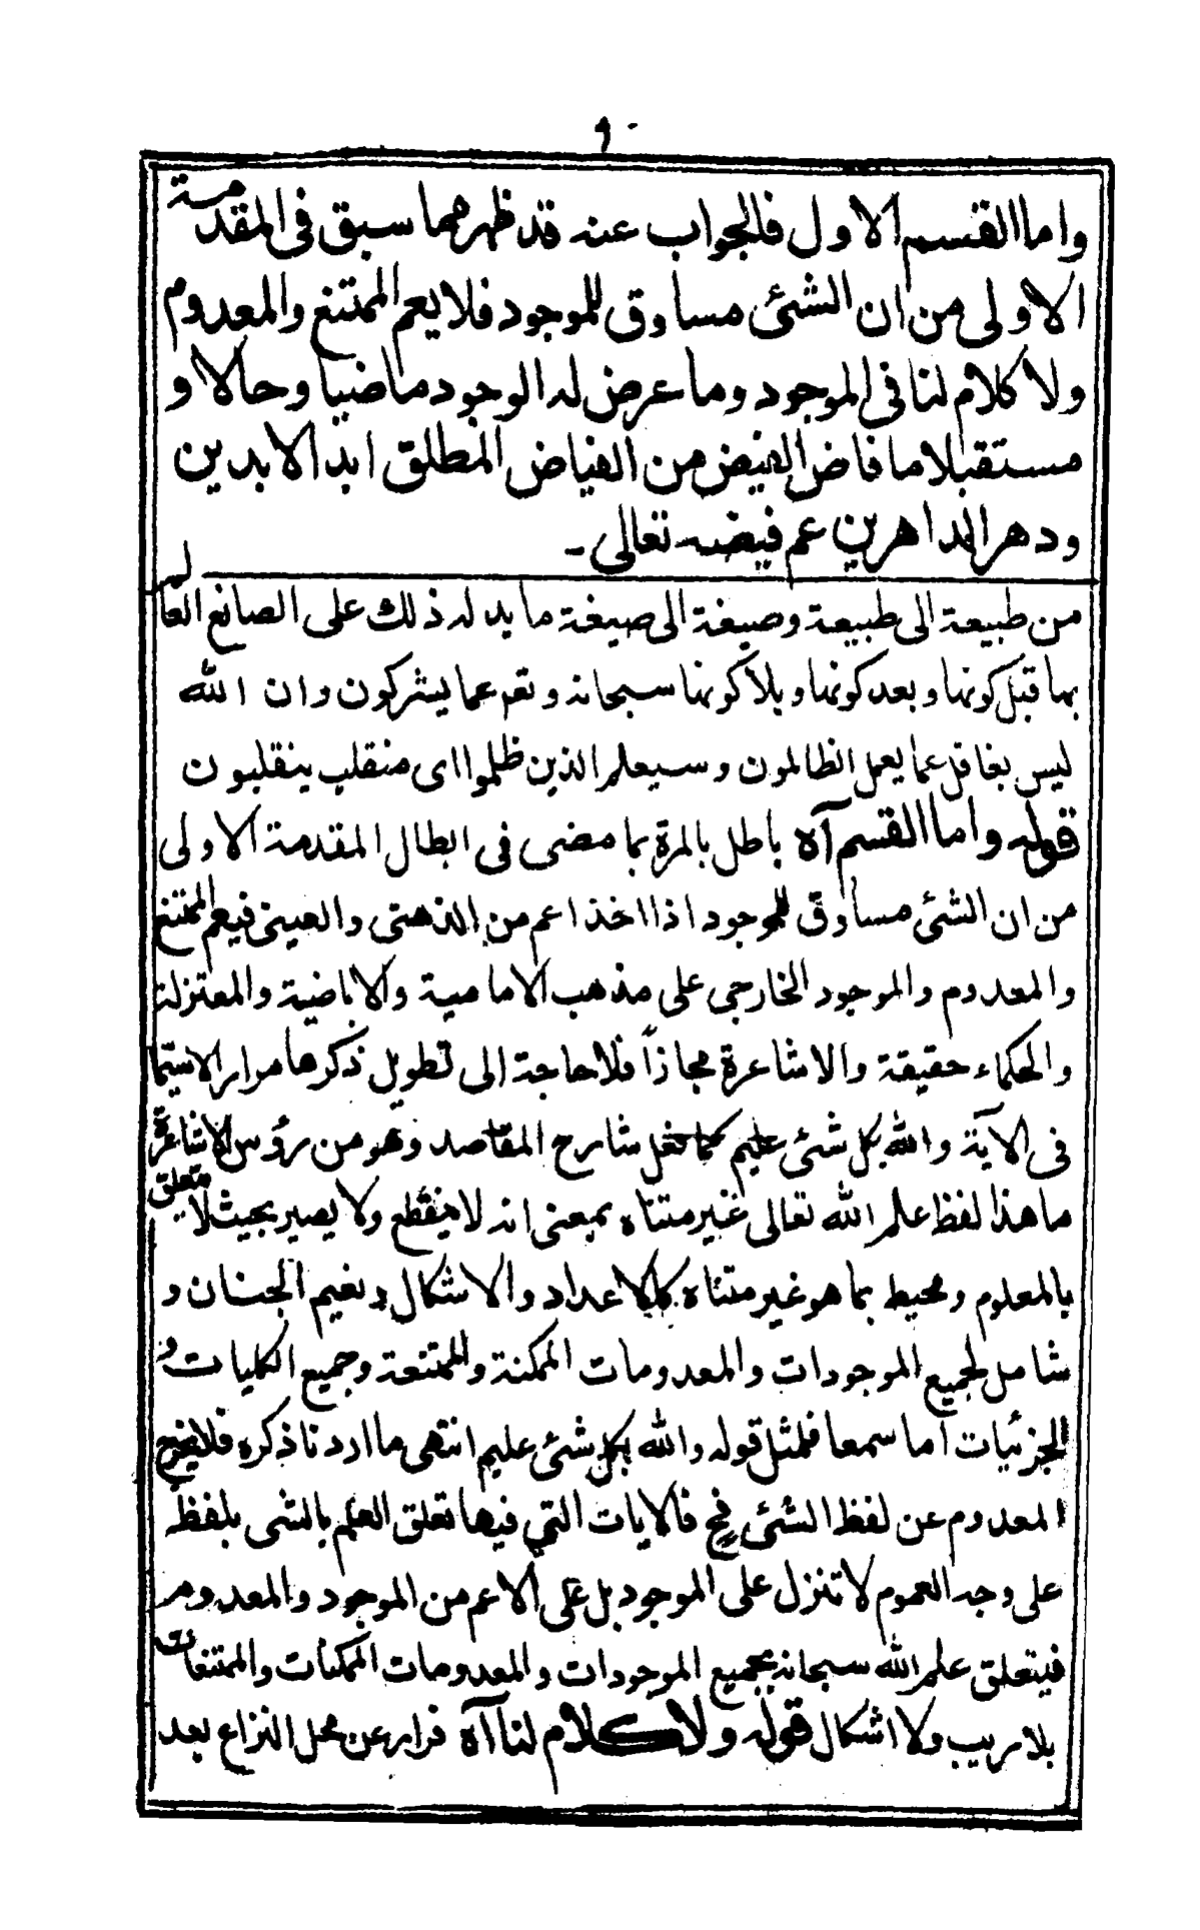 ٩٠
واما القسم الاول فالجواب عنه قد ظهر مما سبق فى المقدمة
الاولى من ان الشئ مساوق للموجود فلا يعم الممتنع والمعدوم
ولا كلام لنا فى الموجود وما عرض له الوجود ماضيا وحالا و
مستقبلا ما فاض الفيض من الفياض المطلق ابد الابدين
ودهر الداهرين عم فيضه تعالى ـ
من طبيعة الى طبيعة وصيغة الى صيغة ما يدله ذلك على الصانع العالم
بما قبل كونها وبعد كونها وبلا كونها سبحانه وتعم عما يشركون وان الله
ليس بغافل عما يعمل الظالمون وسيعلم الذين ظلموا اى منقلب ينقلبون
قوله واما القسم آه باطل بالمرة بما مضى فى ابطال المقدمة الاولى
من ان الشئ مساوق للموجود اذا اخذ اعم من الذهنى والعينى فيعم الممتنع
والمعدوم والموجود الخارجى على مذهب الامامية والاباضية والمعتزلة
والحكماء حقيقة والاشاعرة مجازاً فلا حاجة الى تطويل ذكرها مرارا لاسيما
فى الآية والله بكل شئ عليم كما نقل شارح المقاصد وهو من رؤس الاشاعرة
ما هذا لفظ علم الله تعالى غير متناه بمعنى انه لا ينقطع ولا يصير بحيث لا يتعلق
بالمعلوم ومحيط بما هو غير متناه كالاعداد والاشكال ونعيم الجنان و
شامل لجميع الموجودات والمعدومات الممكنة والممتنعة وجميع الكليات و
الجزئيات اما سمعا فلمثل قوله والله بكل شئ عليم انتهى ما اردنا ذكره فلا يخرج
المعدوم عن لفظ الشئ فح فالايات التى فيها تعلق العلم بالشى بلفظه
على وجه العموم لا تنزل على الموجود بل على الاعم من الموجود والمعدوم
فيتعلق علم الله سبحانه بجميع الموجودات والمعدومات الممكنات والممتنعات
بلا ريب ولا اشكال قوله ولا كلام لنا آه فرار عن محل النزاع بعد